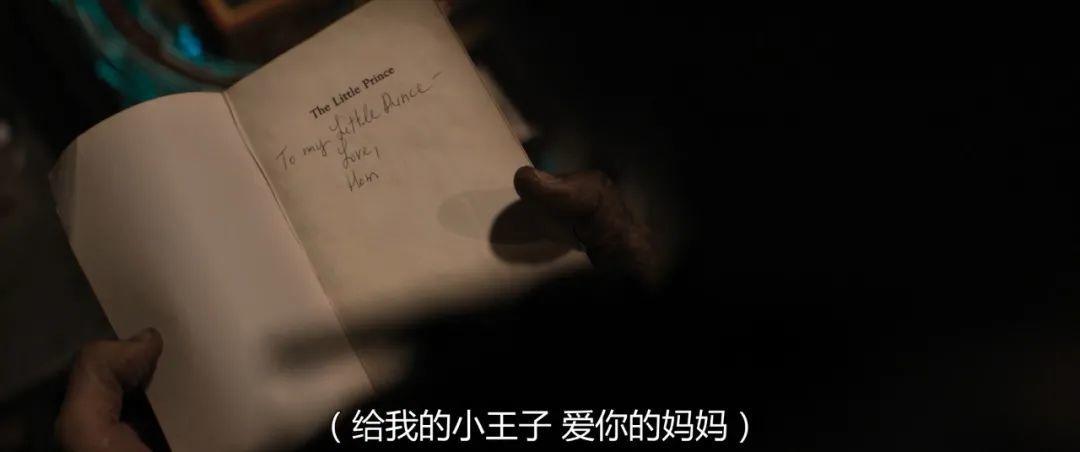 The Little Prince
To my Little Prince -
Love,
Mom
（给我的小王子 爱你的妈妈）